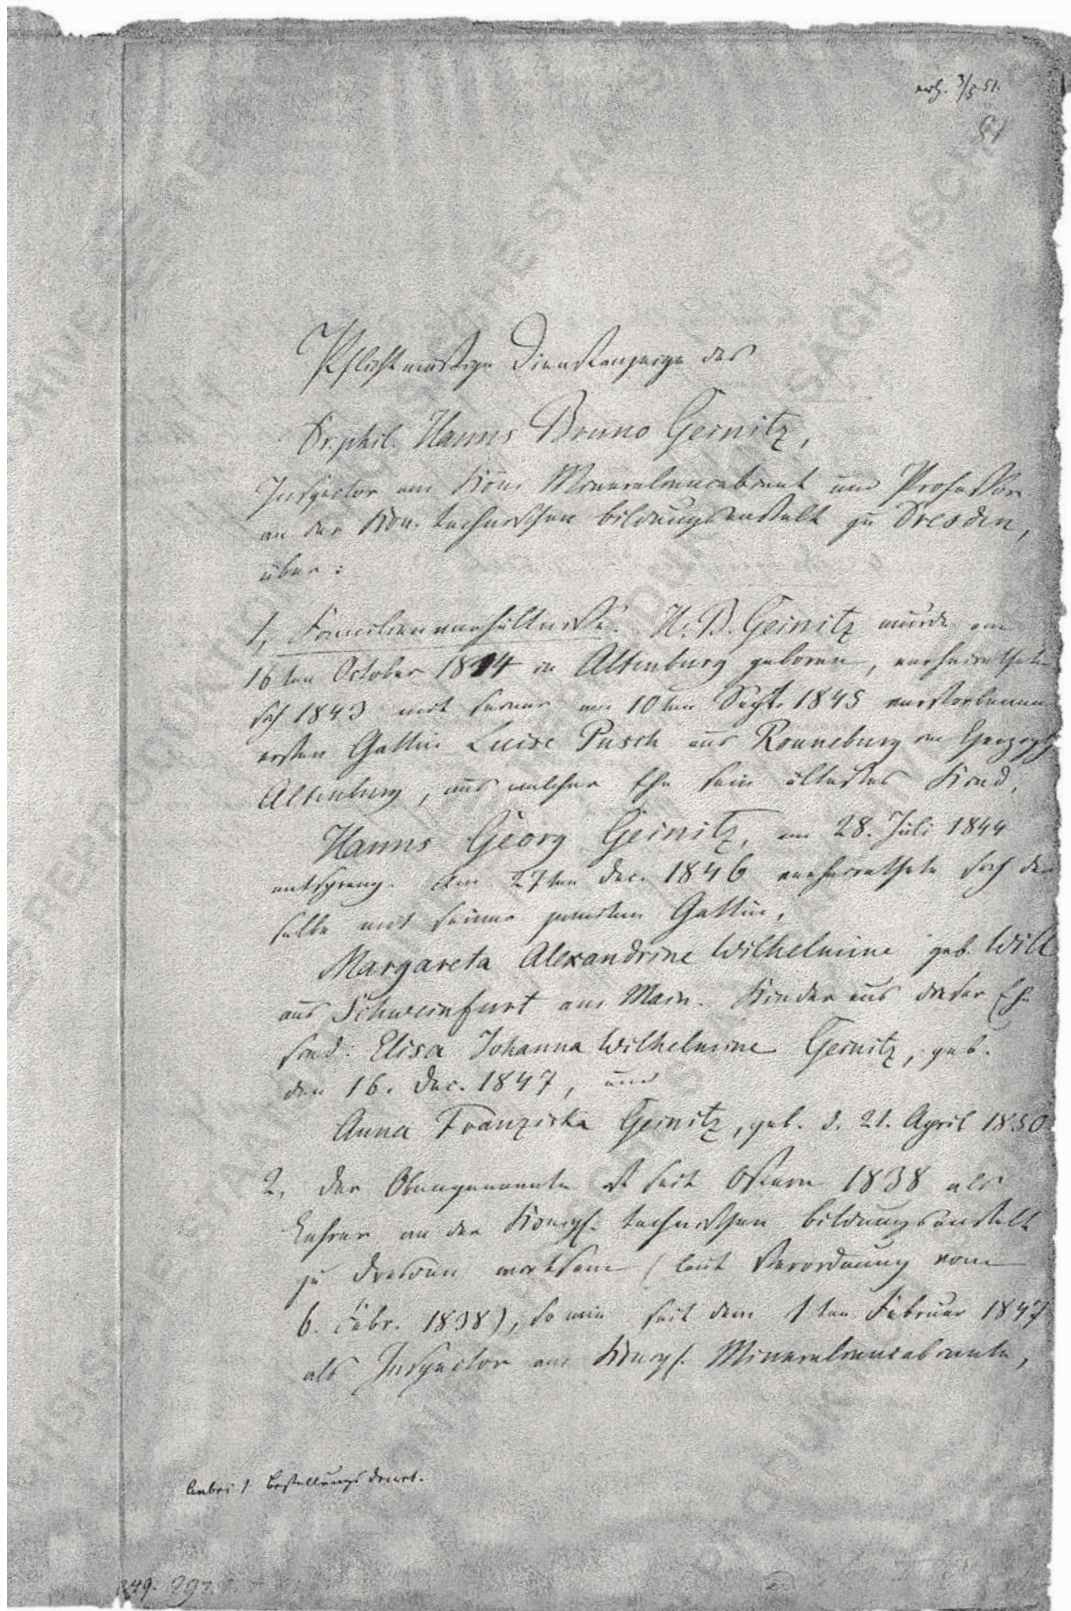 erh. 3/5 51.
81
Pflichtmäßige Dienstanzeige des
Dr. phil. Hanns Bruno Geinitz,
Inspector am Kön. Mineraliencabinet und Professor
an der Kön. technischen Bildungsanstalt zu Dresden,
über:
1, Familienverhältniße. H. B. Geinitz wurde am
16ten October 1814 in Altenburg geboren, verheirathete
sich 1843 mit seiner am 10ten Sept. 1845 verstorbenen
ersten Gattin Luise Pusch aus Ronneburg im Herzogth.
Altenburg, aus welcher Ehe sein ältestes Kind,
Hanns Georg Geinitz, am 28. Juli 1844
entsprang. Am 27ten Dec. 1846 verheirathete sich der
selbe mit seiner zweiten Gattin,
Margareta Alexandrine Wilhelmine geb. Will
aus Schweinfurt am Main. Kinder aus dieser Ehe
sind: Elisa Johanna Wilhelmine Geinitz, geb.
den 16. Dec. 1847, und
Anna Franziska Geinitz, geb. d. 21. April 1850
2, Der Obengenannte ist seit Ostern 1838 als
Lehrer an der Königl. technischen Bildungsanstalt
zu Dresden wirksam (laut Verordnung vom
6. Febr. 1838), so wie seit dem 1ten Februar 1847
als Inspector am Königl. Mineraliencabinete,
Anbei 1 Bestellungsdecret.
249. 297.